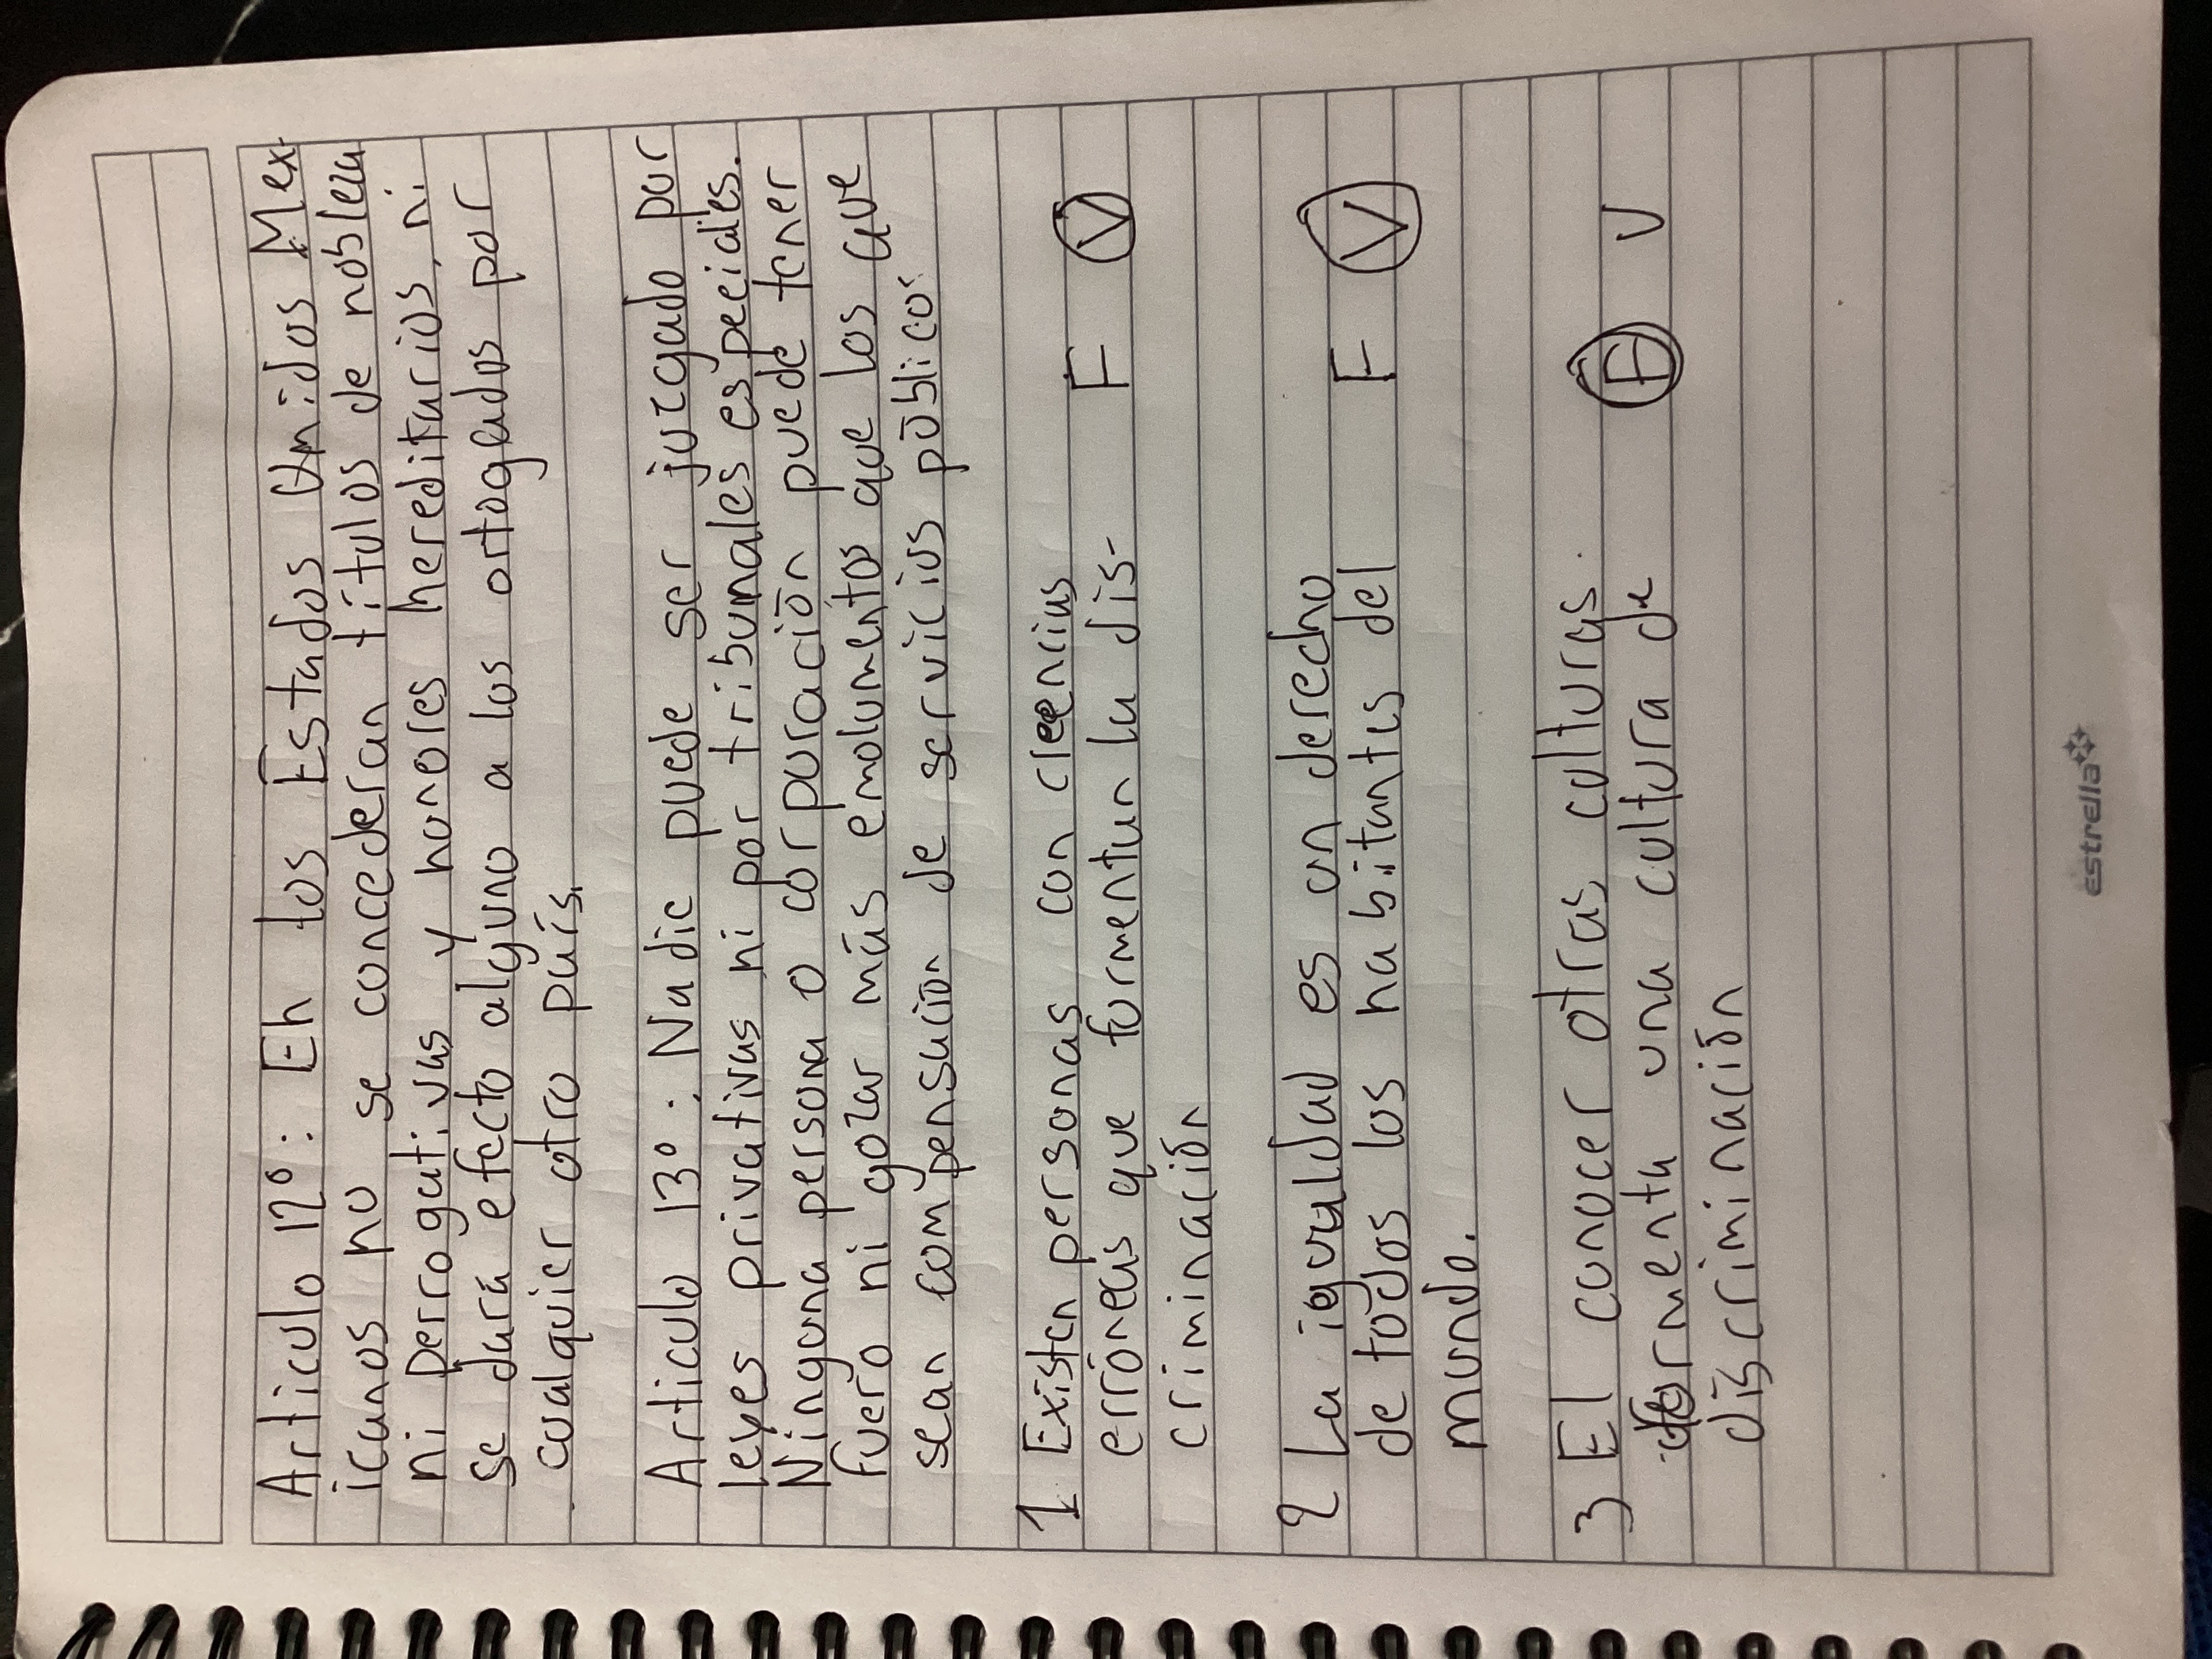 Articulo 12º: En los Estados Unidos Mex-
icanos no se concederan títulos de nobleza
ni perrogativas y honores hereditarios, ni
se dará efecto alguno a los ortogados por
cualquier otro país.
Articulo 13º: Nadie puede ser juzgado por
leyes privativas ni por tribunales especiales.
Ninguna persona o corporación puede tener
fuero ni gozar más emolumentos que los que
sean compensación de servicios públicos
1 Existen personas con creencias
erróneas que formentan la dis- F V
criminación
2 La igualdad es un derecho
de todos los habitantes del F V
mundo.
3 El conocer otras culturas.
formenta una cultura de F V
discriminación
estrella